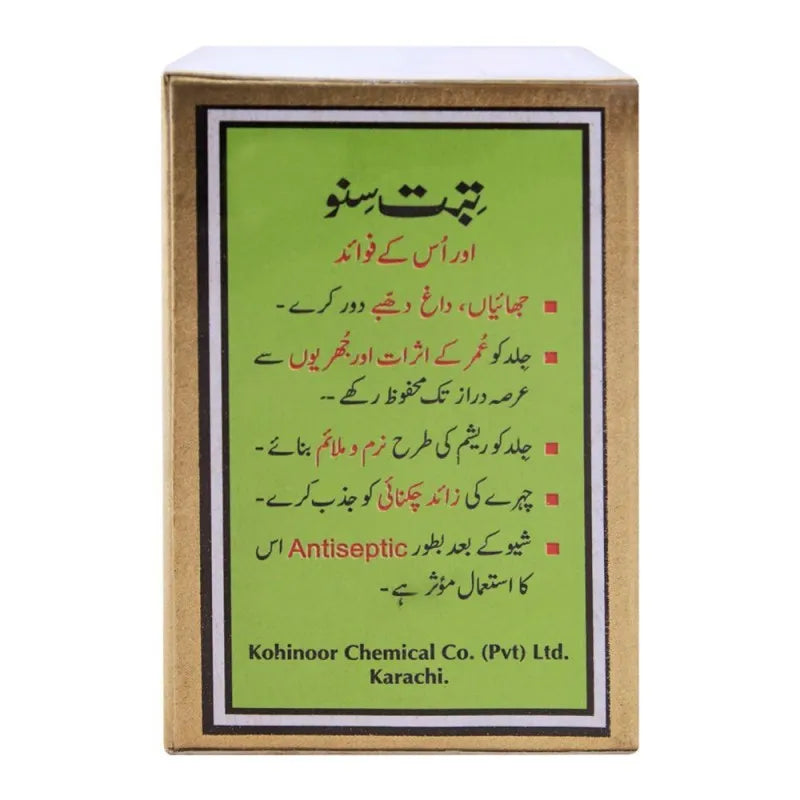 تِبّت سِنو
اور اُس کے فوائد
■ جھائیاں، داغ دھبّے دور کرے۔
■ جِلد کو عُمر کے اثرات اور جُھریوں سے
عرصہ دراز تک محفوظ رکھے۔۔
■ جِلد کو ریشم کی طرح نرم و ملائم بنائے۔
■ چہرے کی زائد چکنائی کو جذب کرے۔
■ شیو کے بعد بطور Antiseptic اس
کا استعمال مؤثر ہے۔
Kohinoor Chemical Co. (Pvt) Ltd.
Karachi.